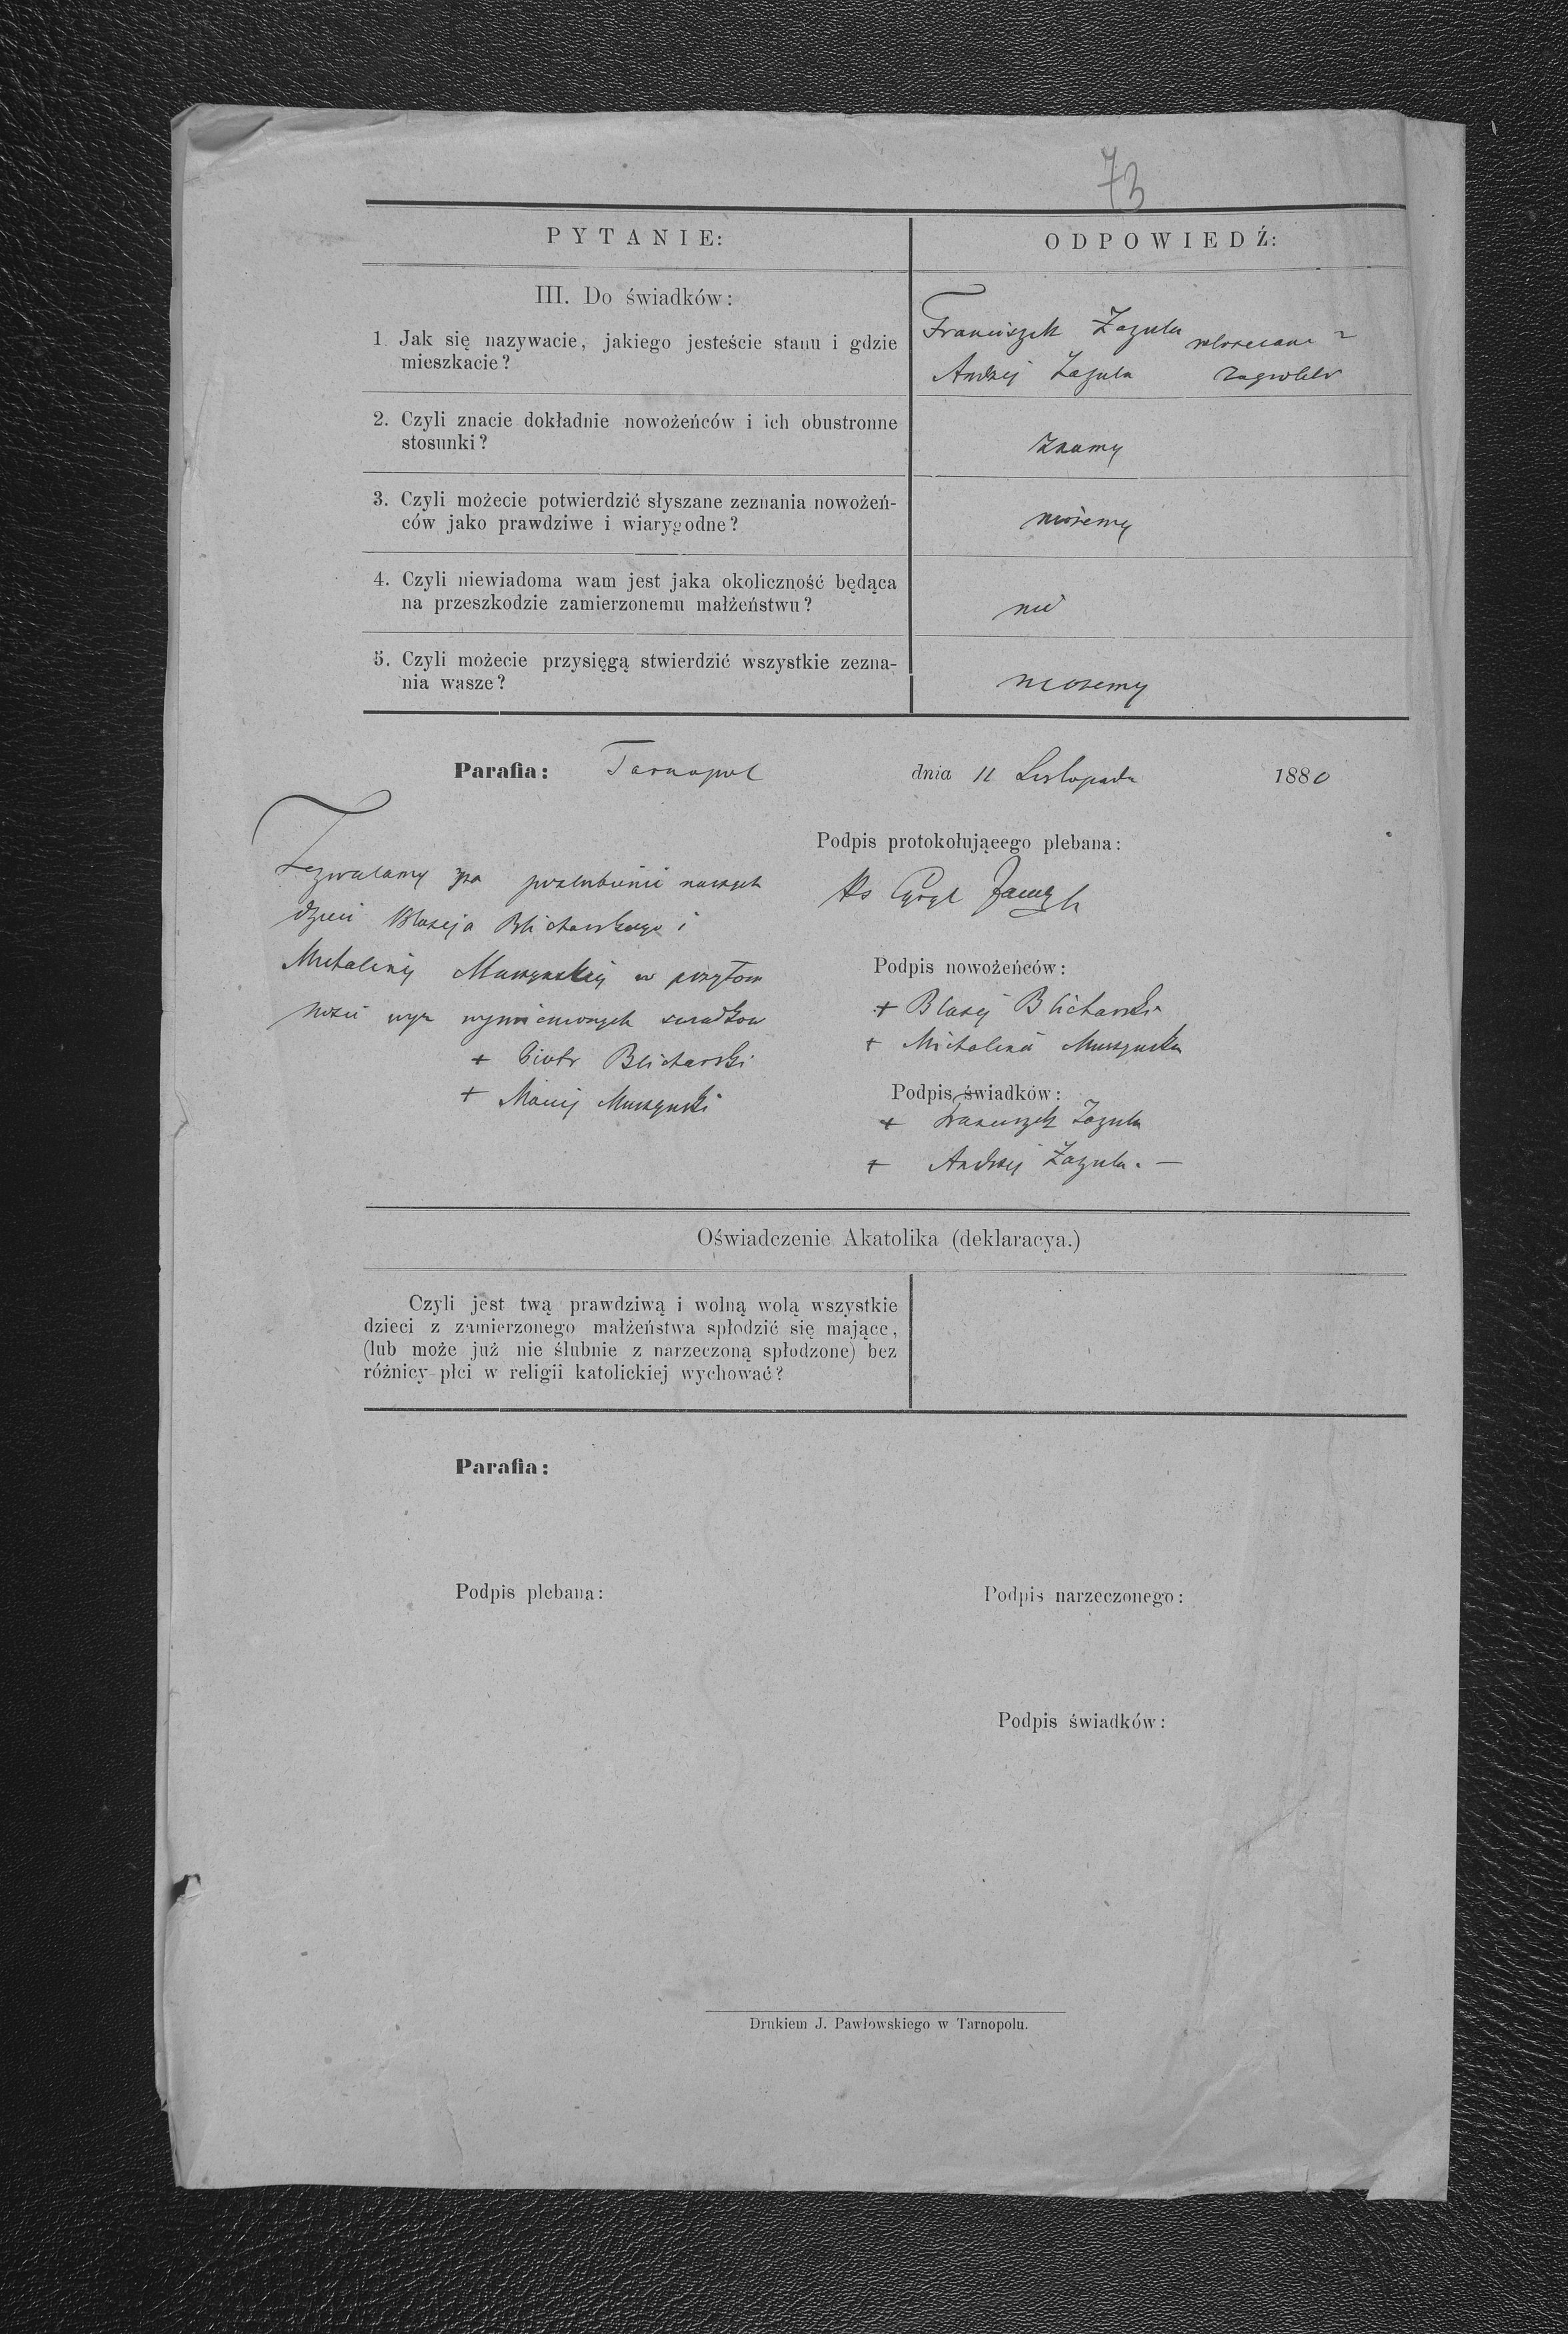 73
PYTANIE:
ODPOWIEDŹ:
III. Do świadków:
1. Jak się nazywacie, jakiego jesteście stanu i gdzie
mieszkacie?
Franciszek Zazula
Andrzej Zazula
2. Czyli znacie dokładnie nowożeńców i ich obustronne
stosunki?
znamy
3. Czyli możecie potwierdzić słyszane zeznania nowożeń-
ców jako prawdziwe i wiarygodne?
możemy
4. Czyli niewiadoma wam jest jaka okoliczność będąca
na przeszkodzie zamierzonemu małżeństwu?
nie
5. Czyli możecie przysięgą stwierdzić wszystkie zezna-
nia wasze?
możemy
Parafia: Tarnopol dnia 11 Listopada 1880
Zezwalamy na poslubienie naszych
dzieci Błażeja Blicharskiego i
Michaliny Muszynskiej w przytom
nosci wyz wymienionych swiadkow
+ Piotr Blicharski
+ Maciej Muszynski
Podpis protokołująeego plebana:
Ks
Podpis nowożeńców:
+ Błażej Blicharski
+ Michalina Muszynska
Podpis świadków:
+ Franciszek Zazula
+ Andrzej Zazula. —
Oświadczenie Akatolika (deklaracya.)
Czyli jest twą prawdziwą i wolną wolą wszystkie
dzieci z zamierzonego małżeństwa spłodzić się mające,
(lub może już nie ślubnie z narzeczoną spłodzone) bez
różnicy płci w religii katolickiej wychować?
Parafia:
Podpis plebana:
Podpis narzeczonego:
Podpis świadków:
Drukiem J. Pawłowskiego w Tarnopolu.